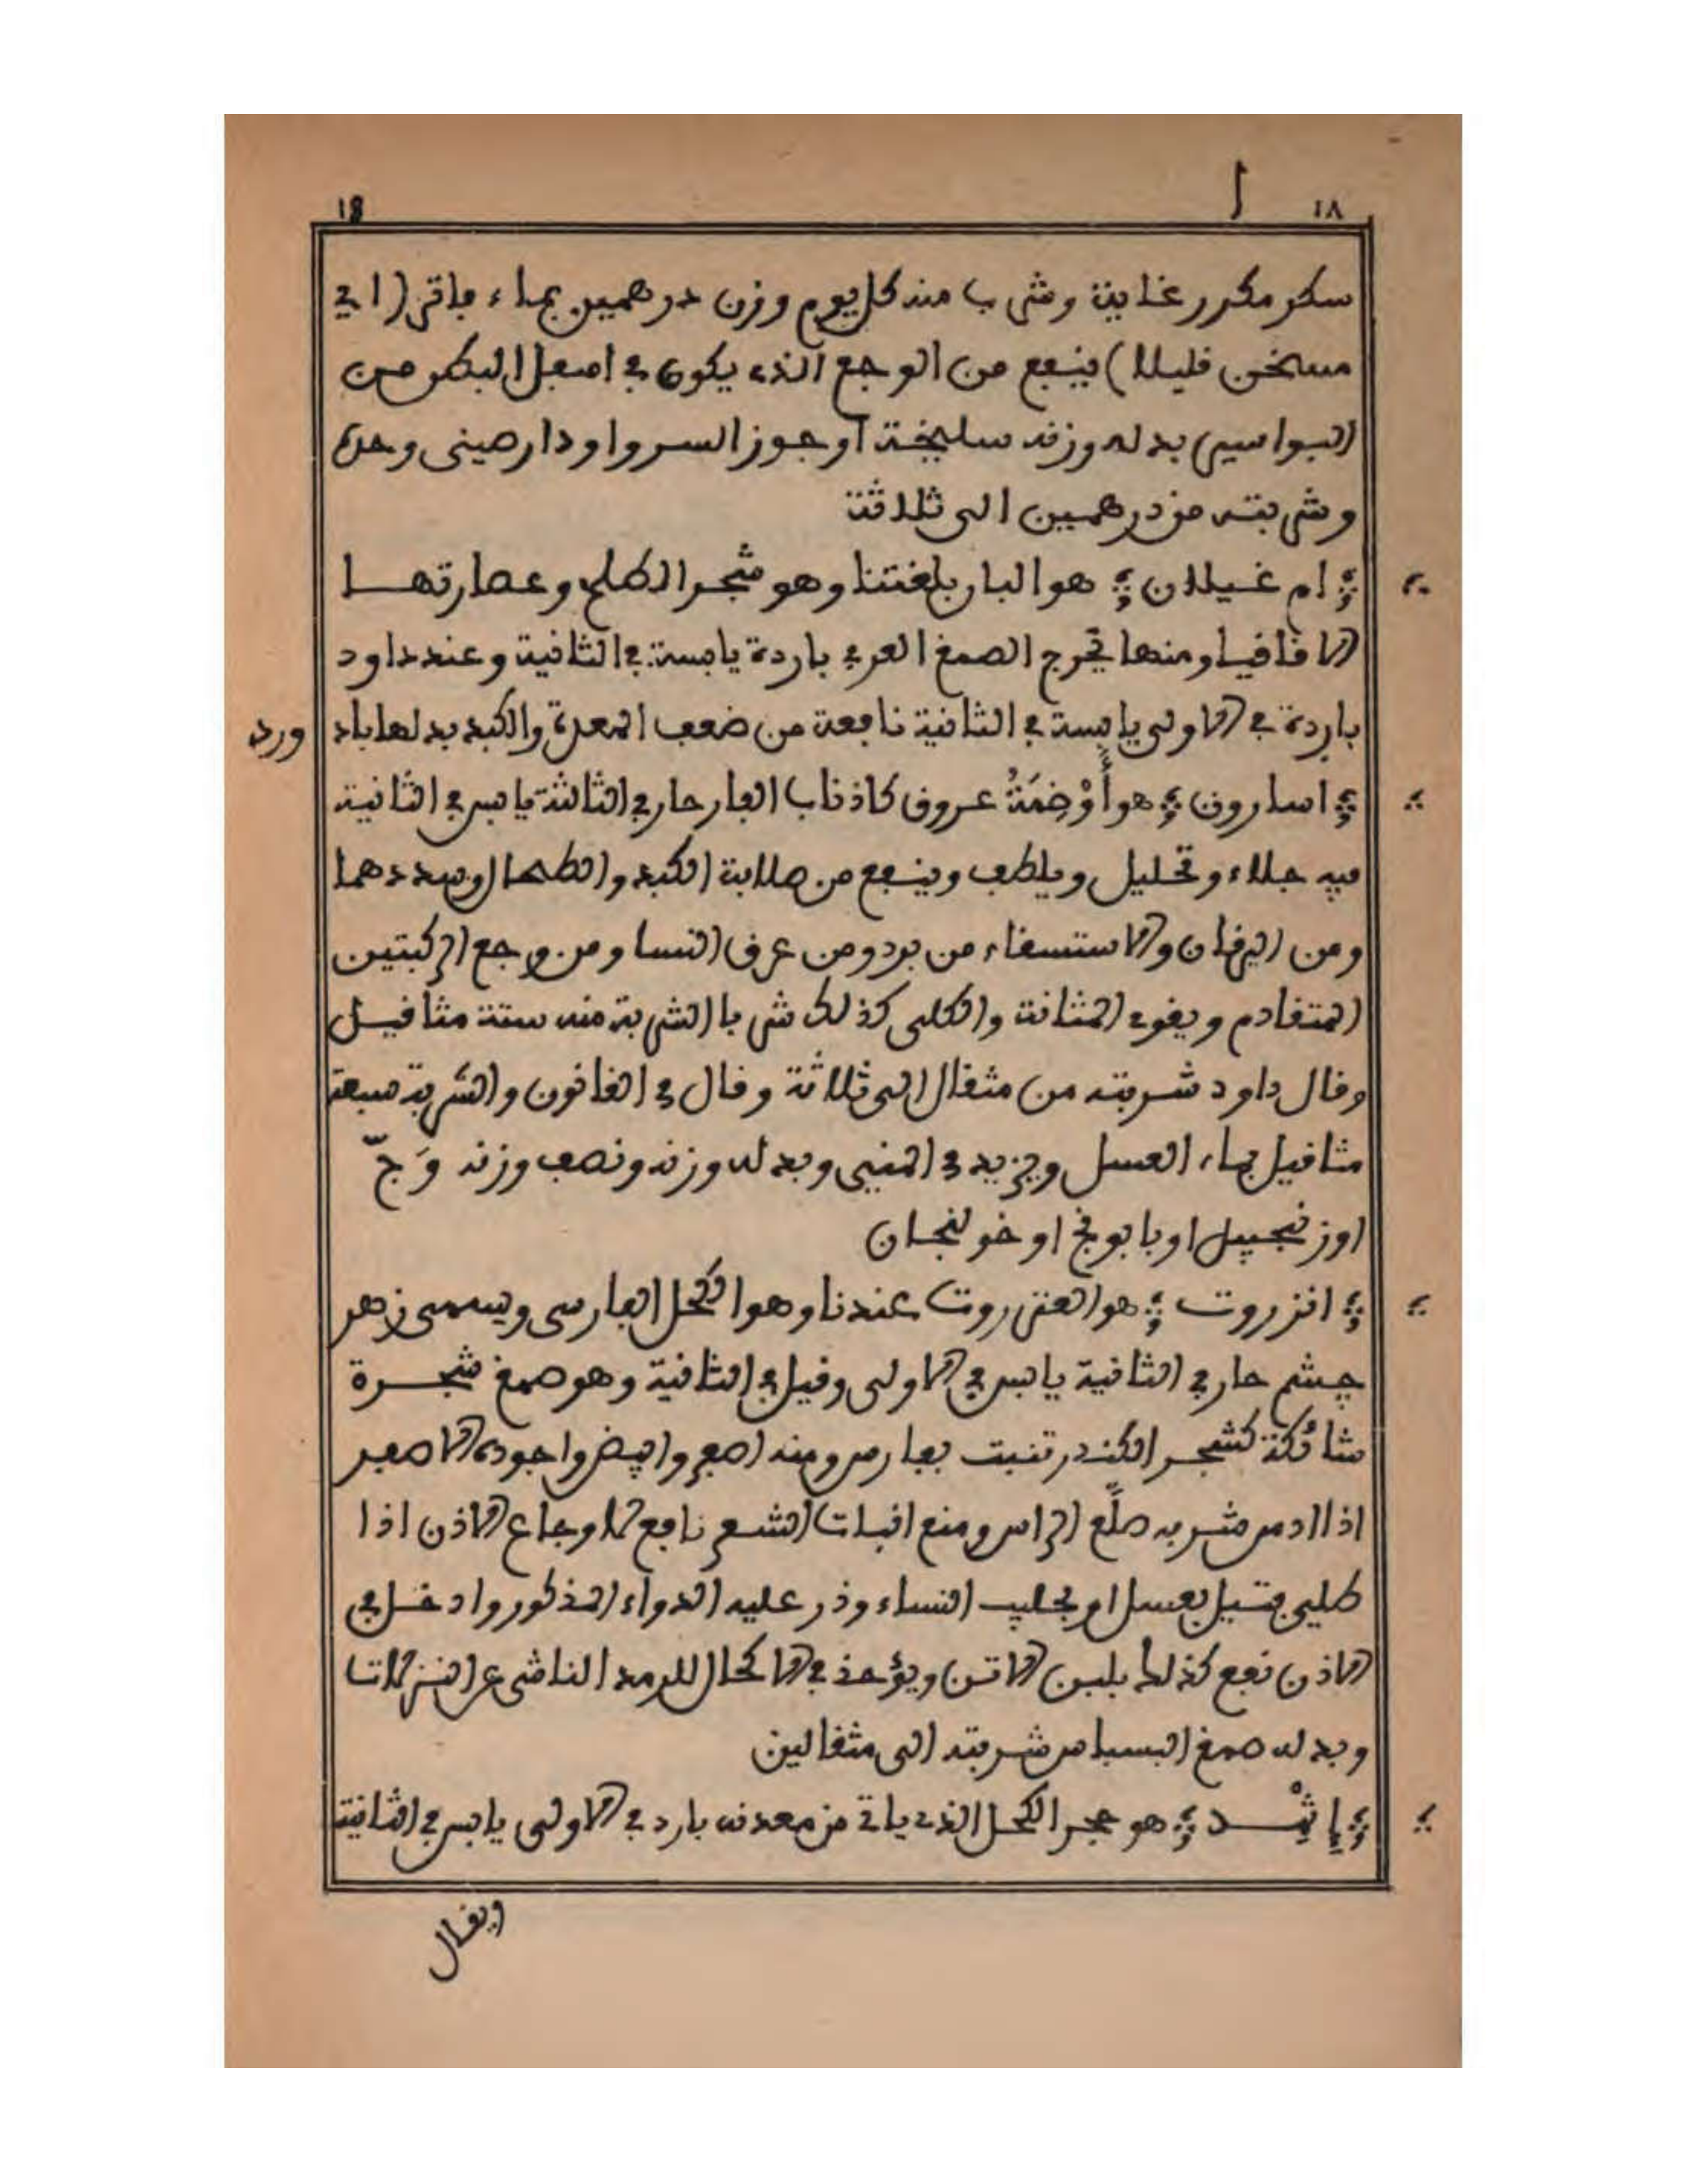 ١٨ ا 18
سكر مكرر غاية وشرب منه كل يوم وزن درهمين بماء فاتر (اي
مسخن قليلا) فينفع من الوجع الذي يكون في اسفل البطن من
البواسير بدله وزنه سليخة او جوز السرو او دارصيني وحده
وشربته من درهمين الى ثلاثة
؞ ام غيلان ؞ هو البار بلغتنا وهو شجر الطلح وعصارتها
الاقاقيا ومنها يخرج الصمغ العربي باردة يابسة في الثانية وعند داود
باردة في الاولى يابسة في الثانية نافعة من ضعف المعدة والكبد بدلها باد ورد
؞ اسارون ؞ هو أَوْضِمَةُ عروق كاذناب الفار حار في الثالثة يابس في الثانية
فيه جلاء وتحليل ويلطف وينفع من صلابة الكبد والطحال وسددهما
ومن اليرقان والاستسقاء من برد ومن عرق النسا ومن وجع الركبتين
المتقادم ويقوي المثانة والكلى كذلك شربا الشربة منه ستة مثاقيل
وقال داود شربته من مثقال الى ثلاثة وقال في القانون والشربة سبعة
مثاقيل بماء العسل ويزيد في المني وبدله وزنه ونصف وزنه وَجّ
او زنجبيل او بابونج او خولنجان
؞ انزروت ؞ هو العنزروت عندنا وهو الكحل الفارسي ويسمى زهر
چشم حار في الثانية يابس في الاولى وقيل في الثانية وهو صمغ شجرة
شائكة كشجر الكندر تنبت بفارس ومنه اصفر وابيض واجوده الاصفر
اذا ادمن شربه صلّع الراس ومنع انبات الشعر نافع لاوجاع الاذن اذا
طلي فتيل بعسل او بحليب النساء وذر عليه الدواء المذكور وادخل في
الاذن نفع كذلك بلبن الاتن ويؤخذ في الاكحال للرمد الناشي عن النزلات
وبدله صمغ البسباس شربته الى مثقالين
؞ إثْمد ؞ هو حجر الكحل الذي ياتي من معدنه بارد في الاولى يابس في الثانية
ويقال